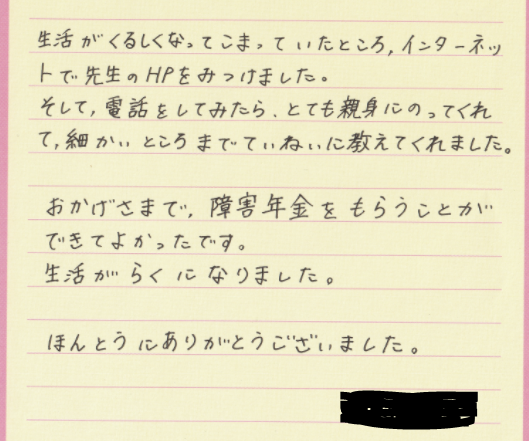 生活がくるしくなってこまっていたところ,インターネッ
トで先生のHPをみつけました。
そして,電話をしてみたら、とても親身にのってくれ
て,細かいところまでていねいに教えてくれました。
おかげさまで,障害年金をもらうことが
できてよかったです。
生活がらくになりました。
ほんとうにありがとうございました。